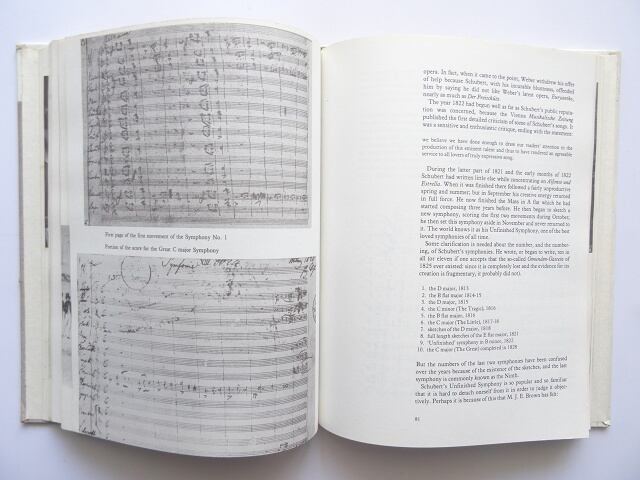 First page of the first movement of the Symphony No. 1
Portion of the score for the Great C major Symphony
Symfonie
opera. In fact, when it came to the point, Weber withdrew his offer
of help because Schubert, with his incurable bluntness, offended
him by saying he did not like Weber's latest opera, Euryanthe,
nearly as much as Der Freischütz.
The year 1822 had begun well as far as Schubert's public repu-
tation was concerned, because the Vienna Musikalische Zeitung
published the first detailed criticism of some of Schubert's songs. It
was a sensitive and enthusiastic critique, ending with the statement
we believe we have done enough to draw our readers' attention to the
production of this eminent talent and thus to have rendered an agreeable
service to all lovers of truly expressive song.
During the latter part of 1821 and the early months of 1822
Schubert had written little else while concentrating on Alfonso and
Estrella. When it was finished there followed a fairly unproductive
spring and summer; but in September his creative energy returned
in full force. He now finished the Mass in A flat which he had
started composing three years before. He then began to sketch a
new symphony, scoring the first two movements during October,
he then set this symphony aside in November and never returned to
it. The world knows it as his Unfinished Symphony, one of the best
loved symphonies of all time.
Some clarification is needed about the number, and the number-
ing, of Schubert's symphonies. He wrote, or began to write, ten in
all (or eleven if one accepts that the so-called Gmunden-Gastein of
1825 ever existed: since it is completely lost and the evidence for its
creation is fragmentary, it probably did not).
1. the D major, 1813
2. the B flat major 1814-15
3. the D major, 1815
4. the C minor (The Tragic), 1816
5. the B flat major, 1816
6. the C major (The Little), 1817-18
7. sketches of the D major, 1818
8. full length sketches of the E flat major, 1821
9. 'Unfinished' symphony in B minor, 1822
10. the C major (The Great) completed in 1828
But the numbers of the last two symphonies have been confused
over the years because of the existence of the sketches, and the last
symphony is commonly known as the Ninth.
Schubert's Unfinished Symphony is so popular and so familiar
that it is hard to detach oneself from it in order to judge it objec-
tively. Perhaps it is because of this that M. J. E. Brown has felt:
81